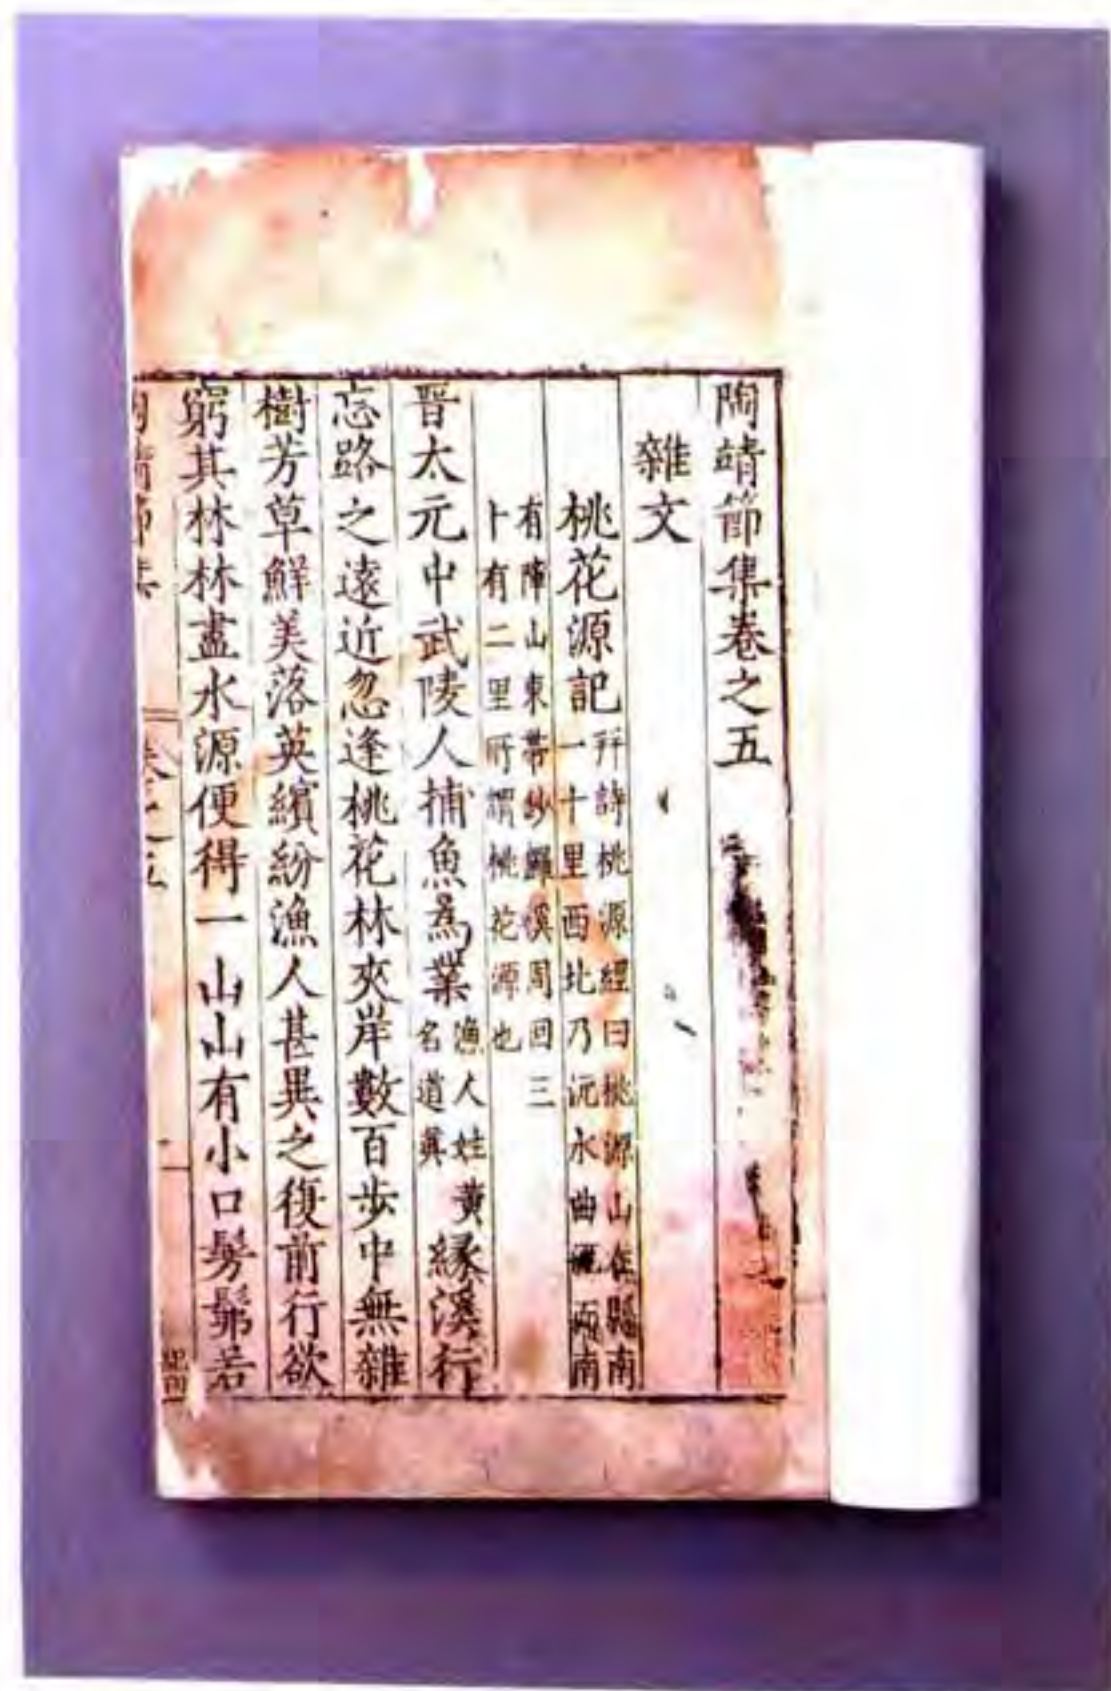 陶靖節集卷之五
雜文
桃花源記幷詩桃源經曰桃源山在縣南一十里西北乃沅水曲而南
有障山東帶鈔鑼溪周回三十有二里所謂桃花源也
晉太元中武陵人捕魚爲業漁人姓黃名道眞緣溪行
忘路之遠近忽逢桃花林夾岸數百步中無雜
樹芳草鮮美落英繽紛漁人甚異之復前行欲
窮其林林盡水源便得一山山有小口髣髴若